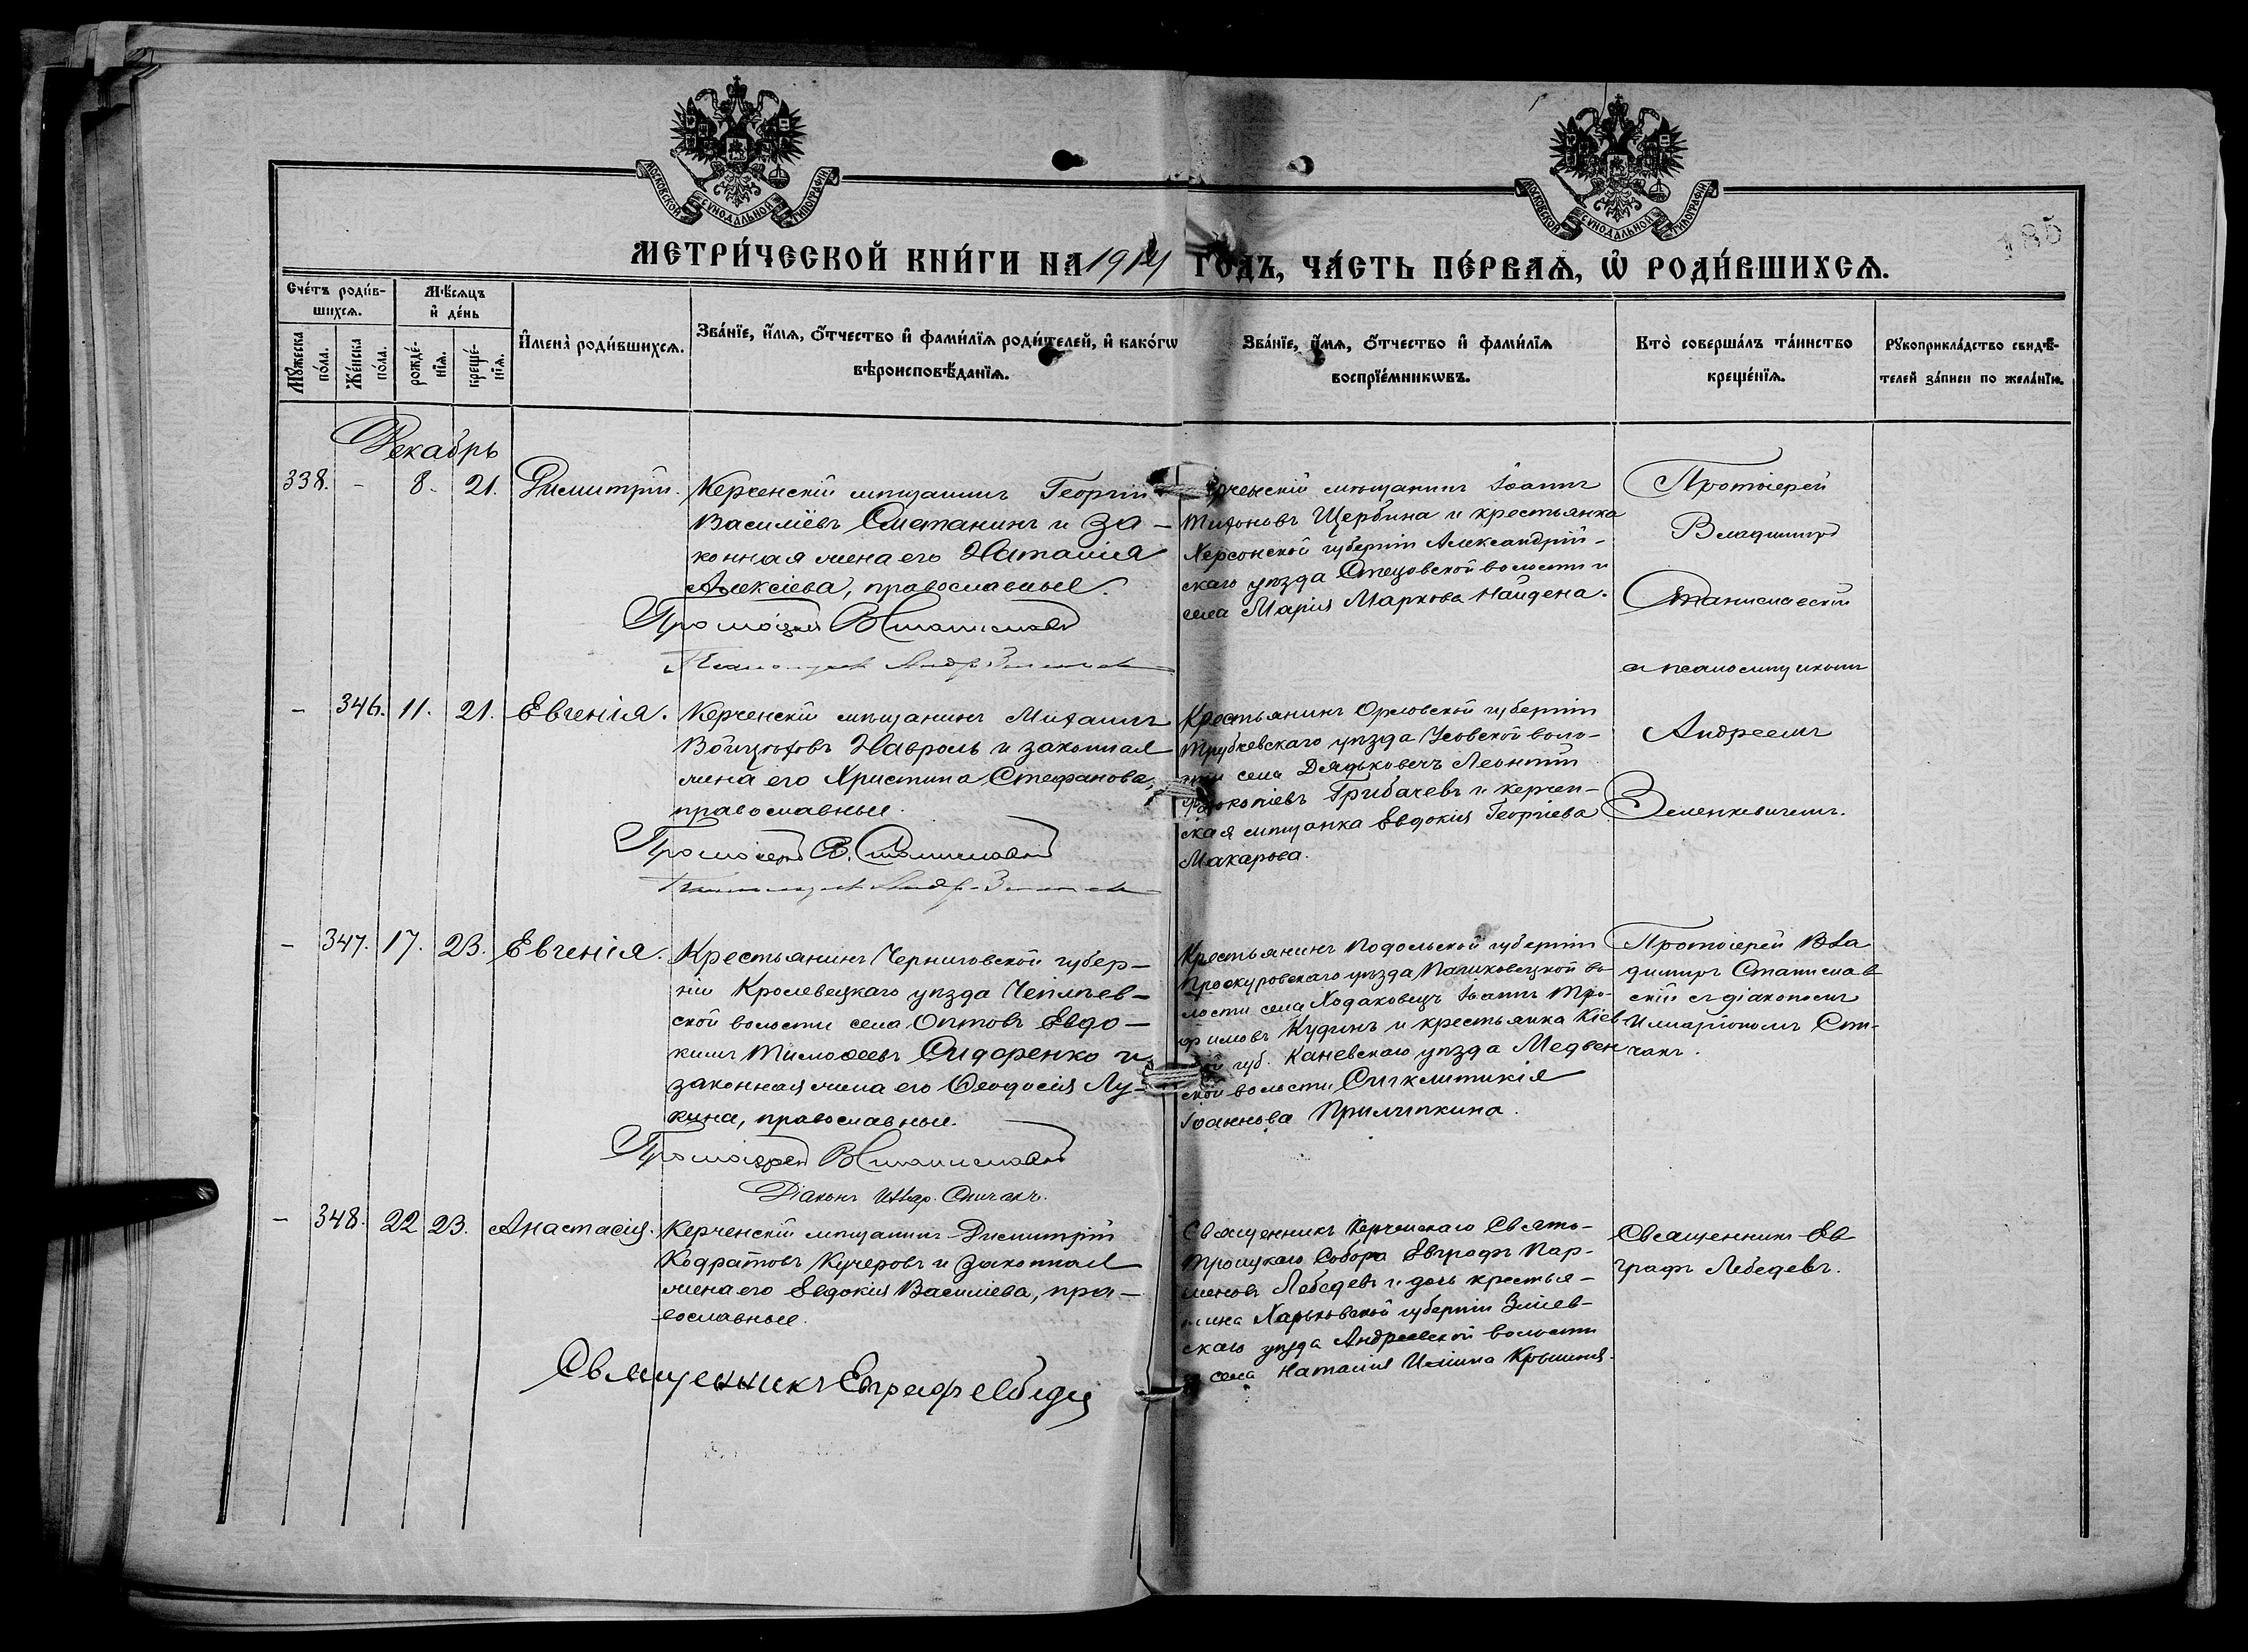 МОСКОВСКОЙ СѴНОДАЛЬНОЙ ТИПОГРАФІИ
МОСКОВСКОЙ СѴНОДАЛЬНОЙ ТИПОГРАФІИ
185
МЕТРИ́ЧЕСКОЙ КНИ́ГИ НА 1914 ГОДЪ, ЧА́СТЬ ПЕ́РВАѦ, Ѽ РОДИ́ВШИХСѦ.
Сче́тъ роди́в-
шихсѧ.
Мꙋ́жеска
по́ла.
Же́нска
по́ла.
Мѣ́сѧцъ
и҆ де́нь
рожде́-
нїѧ.
креще́-
нїѧ.
И҆мена̀ роди́вшихсѧ.
Зва́нїе, и҆́мѧ, ѻ҆́тчество и҆ фами́лїѧ роди́телей, и҆ како́гѡ
вѣроисповѣ́данїѧ.
Зва́нїе, и҆́мѧ, ѻ҆́тчество и҆ фами́лїѧ
воспрїе́мникѡвъ.
Кто̀ соверша́лъ та́инство
креще́нїѧ.
Рꙋкоприкла́дство свидѣ́-
телей за́писи по жела́нїю.
Декабрь
338. - 8. 21. Димитрій.
Керченскій мѣщанинъ Георгій
Василіевъ Сметанинъ и за-
конная жена его Наталія
Алексіева, православные.
Протоіерей В Станиславскій
Керченскій мѣщанинъ Іоаннъ
Тихоновъ Щербина и крестьянка
Херсонской губерніи Александрій-
скаго уѣзда Стецовской волости и
села Марія Маркова Найдена.
Протоіерей
Владиміръ
Станиславскій
съ псаломщикомъ
Андреемъ
Зеленкевичемъ.
- 346. 11. 21. Евгенія.
Керченскій мѣщанинъ Михаилъ
Войцѣховъ Навроль и законная
жена его Христина Стефанова,
православные.
Протоіерей В. Станиславскій
Крестьянинъ Орловской губерніи
Трубчевскаго уѣзда Усовской воло-
сти села Дядьковичъ Леонтій
Прокопіевъ Грибачевъ и керчен-
ская мѣщанка Евдокія Георгіева
Макарова.
- 347. 17. 23. Евгенія.
Крестьянинъ Черниговской губер-
ніи Кролевецкаго уѣзда Чепліев-
ской волости села Оптовъ Евдо-
кимъ Тимоѳеевъ Сидоренко и
законная жена его Ѳеодосія Лу-
кина, православные.
Протоіерей В Станиславскій
Діаконъ Илар. Спичакъ.
Крестьянинъ Подольской губерніи
Проскуровскаго уѣзда Пашковецкой во-
лости села Ходаковецъ Іоаннъ Тро-
фимовъ Кудинъ и крестьянка Кіев-
ской губ. Каневскаго уѣзда Медвен-
ской волости Сигклитикія
Іоаннова Прилипкина.
Протоіерей Вла
диміръ Станислав
скій съ діакономъ
Иларіономъ Спи-
чакъ.
- 348. 22 23. Анастасія.
Керченскій мѣщанинъ Димитрій
Кодратовъ Кучеровъ и законная
жена его Евдокія Василіева, пра-
вославные.
Священникъ Евграфъ Лебедевъ
Священникъ Керченскаго Свято-
Троицкаго Собора Евграфъ Пар-
меновъ Лебедевъ и дочь крестья-
нина Харьковской губерніи Зміев-
скаго уѣзда Андреевской волости
и села Наталія Ильина Крышина.
Священникъ Ев
графъ Лебедевъ.